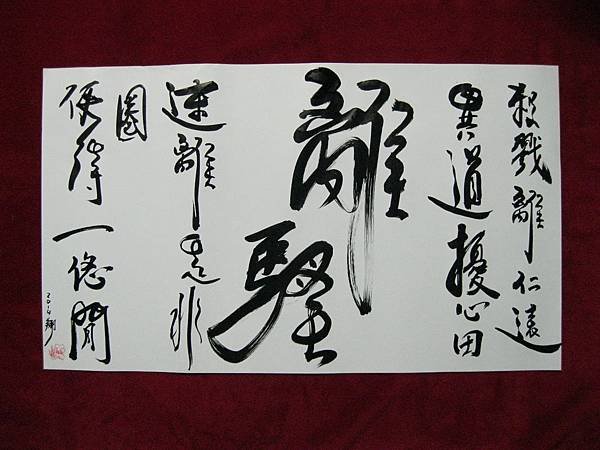 殺戮離仁遠
異道擾心田
離
速離是非
圈
便得一悠閒
2014 翔